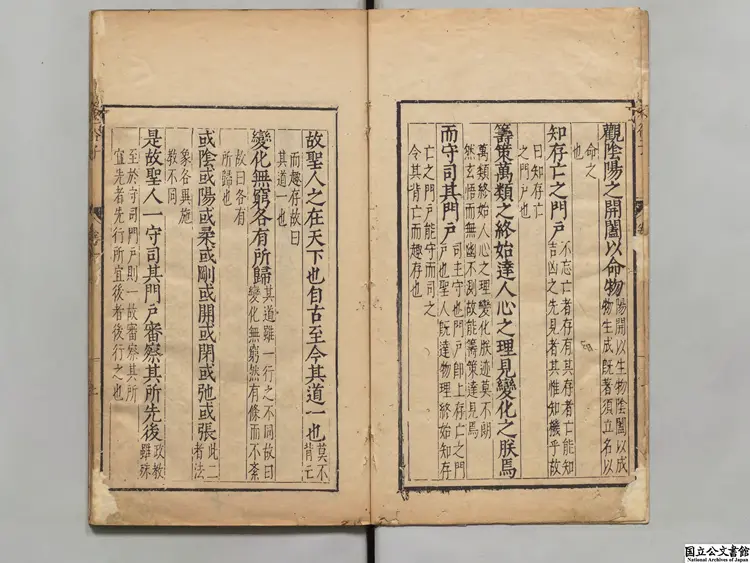 觀陰陽之開闔以命物
陽開以生物陰闔以成
物生成旣著須立名以
命之
也
知存亡之門戶
不忘亡者存有其存者亡能知
吉凶之先見者其惟知機乎故
曰知存亡
之門戶也
籌策萬類之終始達人心之理見變化之朕焉
萬類終始人心之理變化朕迹莫不朗
然玄悟而無幽不測故能籌策達見焉
而守司其門戶
司主守也門戶即上存亡之門
戶也聖人旣達物理終始知存
亡之門戶能守而司之
令其背亡而趣存也
故聖人之在天下也自古至今其道一也
莫不
背亡
而趣存故曰
其道一也
變化無窮各有所歸
其道雖一行之不同故曰
變化無窮然有條而不紊
故曰各有
所歸也
或陰或陽或柔或剛或開或閉或弛或張
此二
者法
象各異施
教不同
是故聖人一守司其門戶審察其所先後
政教
雖殊
至於守司門戶則一故審察其所
宜先者先行所宜後者後行之也
国立公文書館
National Archives of Japan